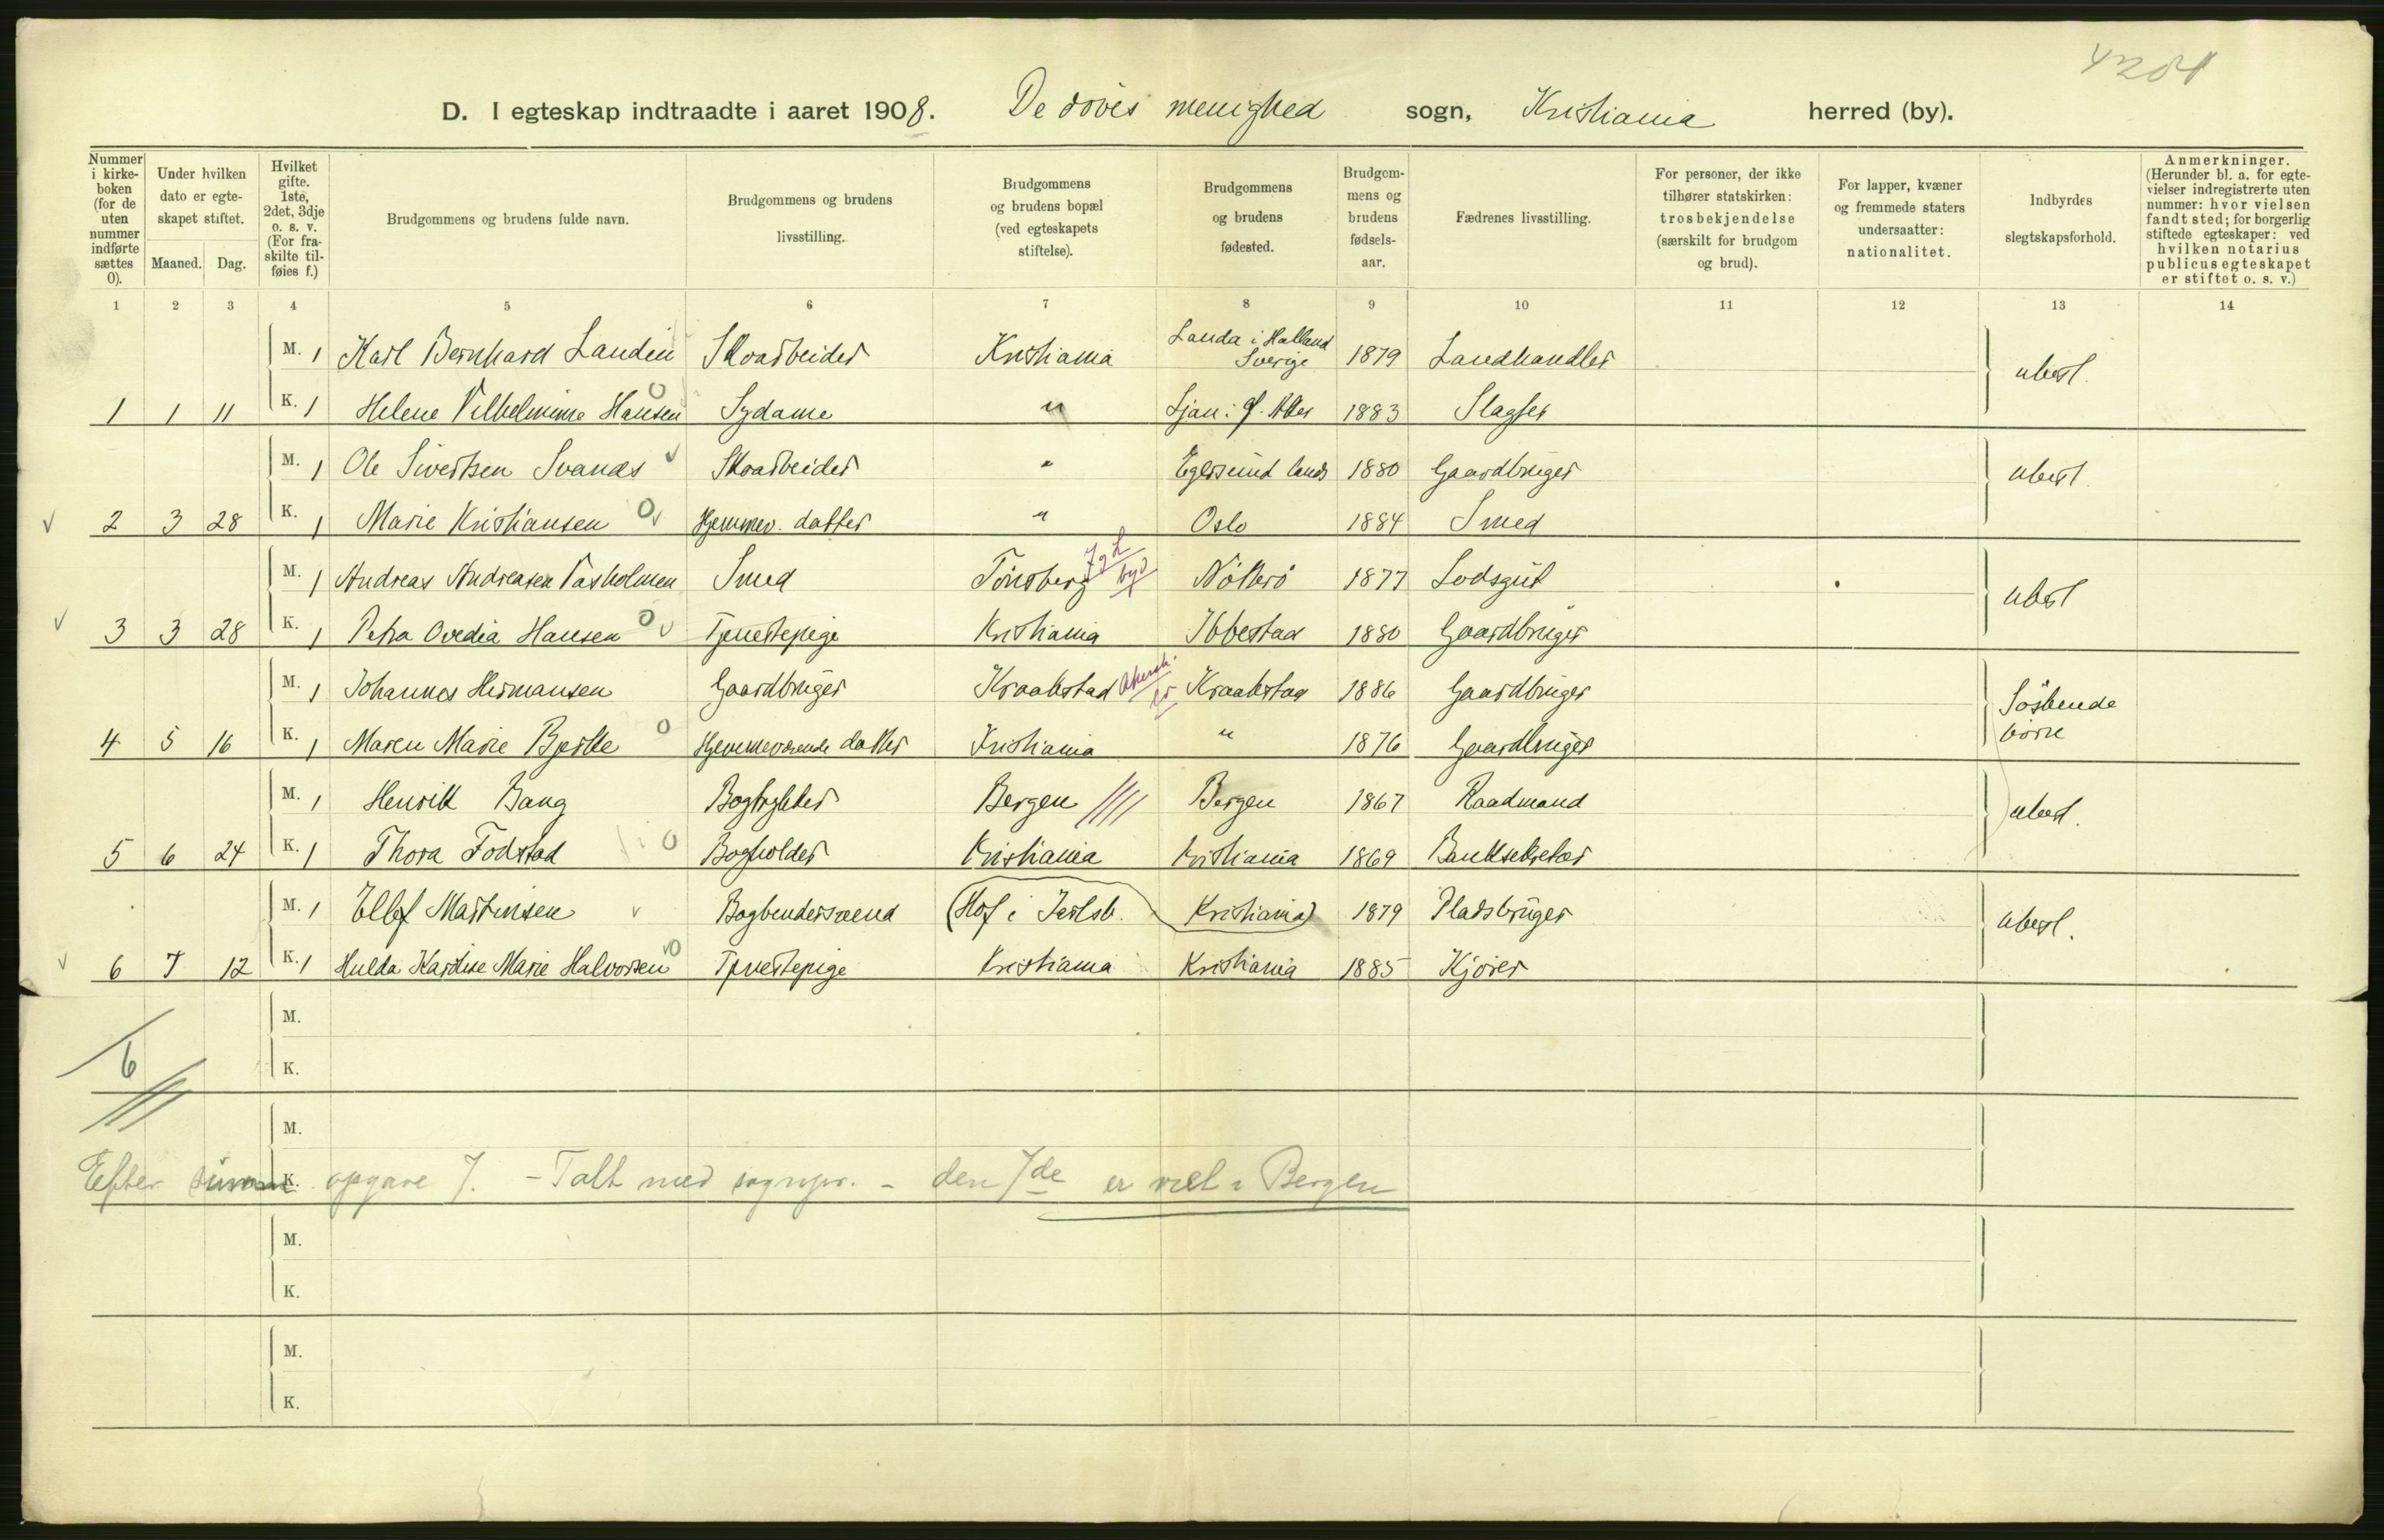 4204
D. I egteskap indtraadte i aaret 1908. De døves menighed sogn, Kristiania herred (by).
Nummer i kirkeboken (for de uten nummer indførte sættes 0).
Under hvilken dato er egteskapet stiftet.
Maaned. Dag.
Hvilket gifte. 1ste, 2det, 3dje o. s. v. (For fraskilte tilføies f.)
Brudgommens og brudens fulde navn.
Brudgommens og brudens livsstilling.
Brudgommens og brudens bopæl (ved egteskapets stiftelse).
Brudgommens og brudens fødested.
Brudgommens og brudens fødselsaar.
Fædrenes livsstilling.
For personer, der ikke tilhører statskirken: trosbekjendelse (særskilt for brudgom og brud).
For lapper, kvæner og fremmede staters undersaatter: nationalitet.
Indbyrdes slegtskapsforhold.
Anmerkninger. (Herunder bl. a. for egtevielser indregistrerte uten nummer: hvor vielsen fandt sted; for borgerlig stiftede egteskaper: ved hvilken notarius publicus egteskapet er stiftet o. s. v.)
1 2 3 4 5 6 7 8 9 10 11 12 13 14
M. 1 Karl Bernhard Landin Skoarbeider Kristiania Landa i Halland Sverige 1879 Landhandler ubesl.
1 1 11 K. 1 Helene Vilhelmine Hansen 0 Sydame " Ljan i Ø. Aker 1883 Slagter
M. 1 Ole Sivertsen Svanæs Skoarbeider " Egersund lands 1880 Gaardbruger ubesl.
2 3 28 K. 1 Marie Kristiansen 0 Hjemmev. datter " Oslo 1884 Smed
M. 1 Andreas Andreasen Vasholmen Smed Tönsberg J & L byd Nötterö 1877 Lodsgut ubesl
3 3 28 K. 1 Petra Ovedia Hansen 0 Tjenestepige Kristiania Ibbestad 1880 Gaardbruger
M. 1 Johannes Hermansen Gaardbruger Kraakstad Akersh. Kraakstad 1886 Gaardbruger Söskende börn
4 5 16 K. 1 Maren Marie Bjerke 0 Hjemmeværende datter Kristiania " 1876 Gaardbruger
M. 1 Henrik Bang Bogtrykker Bergen Bergen 1867 Raadmand ubesl.
5 6 24 K. 1 Thora Fodstad 0 Bogholder Kristiania Kristiania 1869 Banksekretær
M. 1 Ellef Martinsen Bogbendersvend (Hof i Jarlsb. Kristiania) 1879 Pladsbruger ubesl.
6 7 12 K. 1 Hulda Kardise Marie Halvorsen 0 Tjenestepige Kristiania Kristiania 1885 Kjörer
M.
6
K.
M.
K.
Efter opgave 7. - Talt med sognepr. - den 7de er viet i Bergen
M.
K.
M.
K.